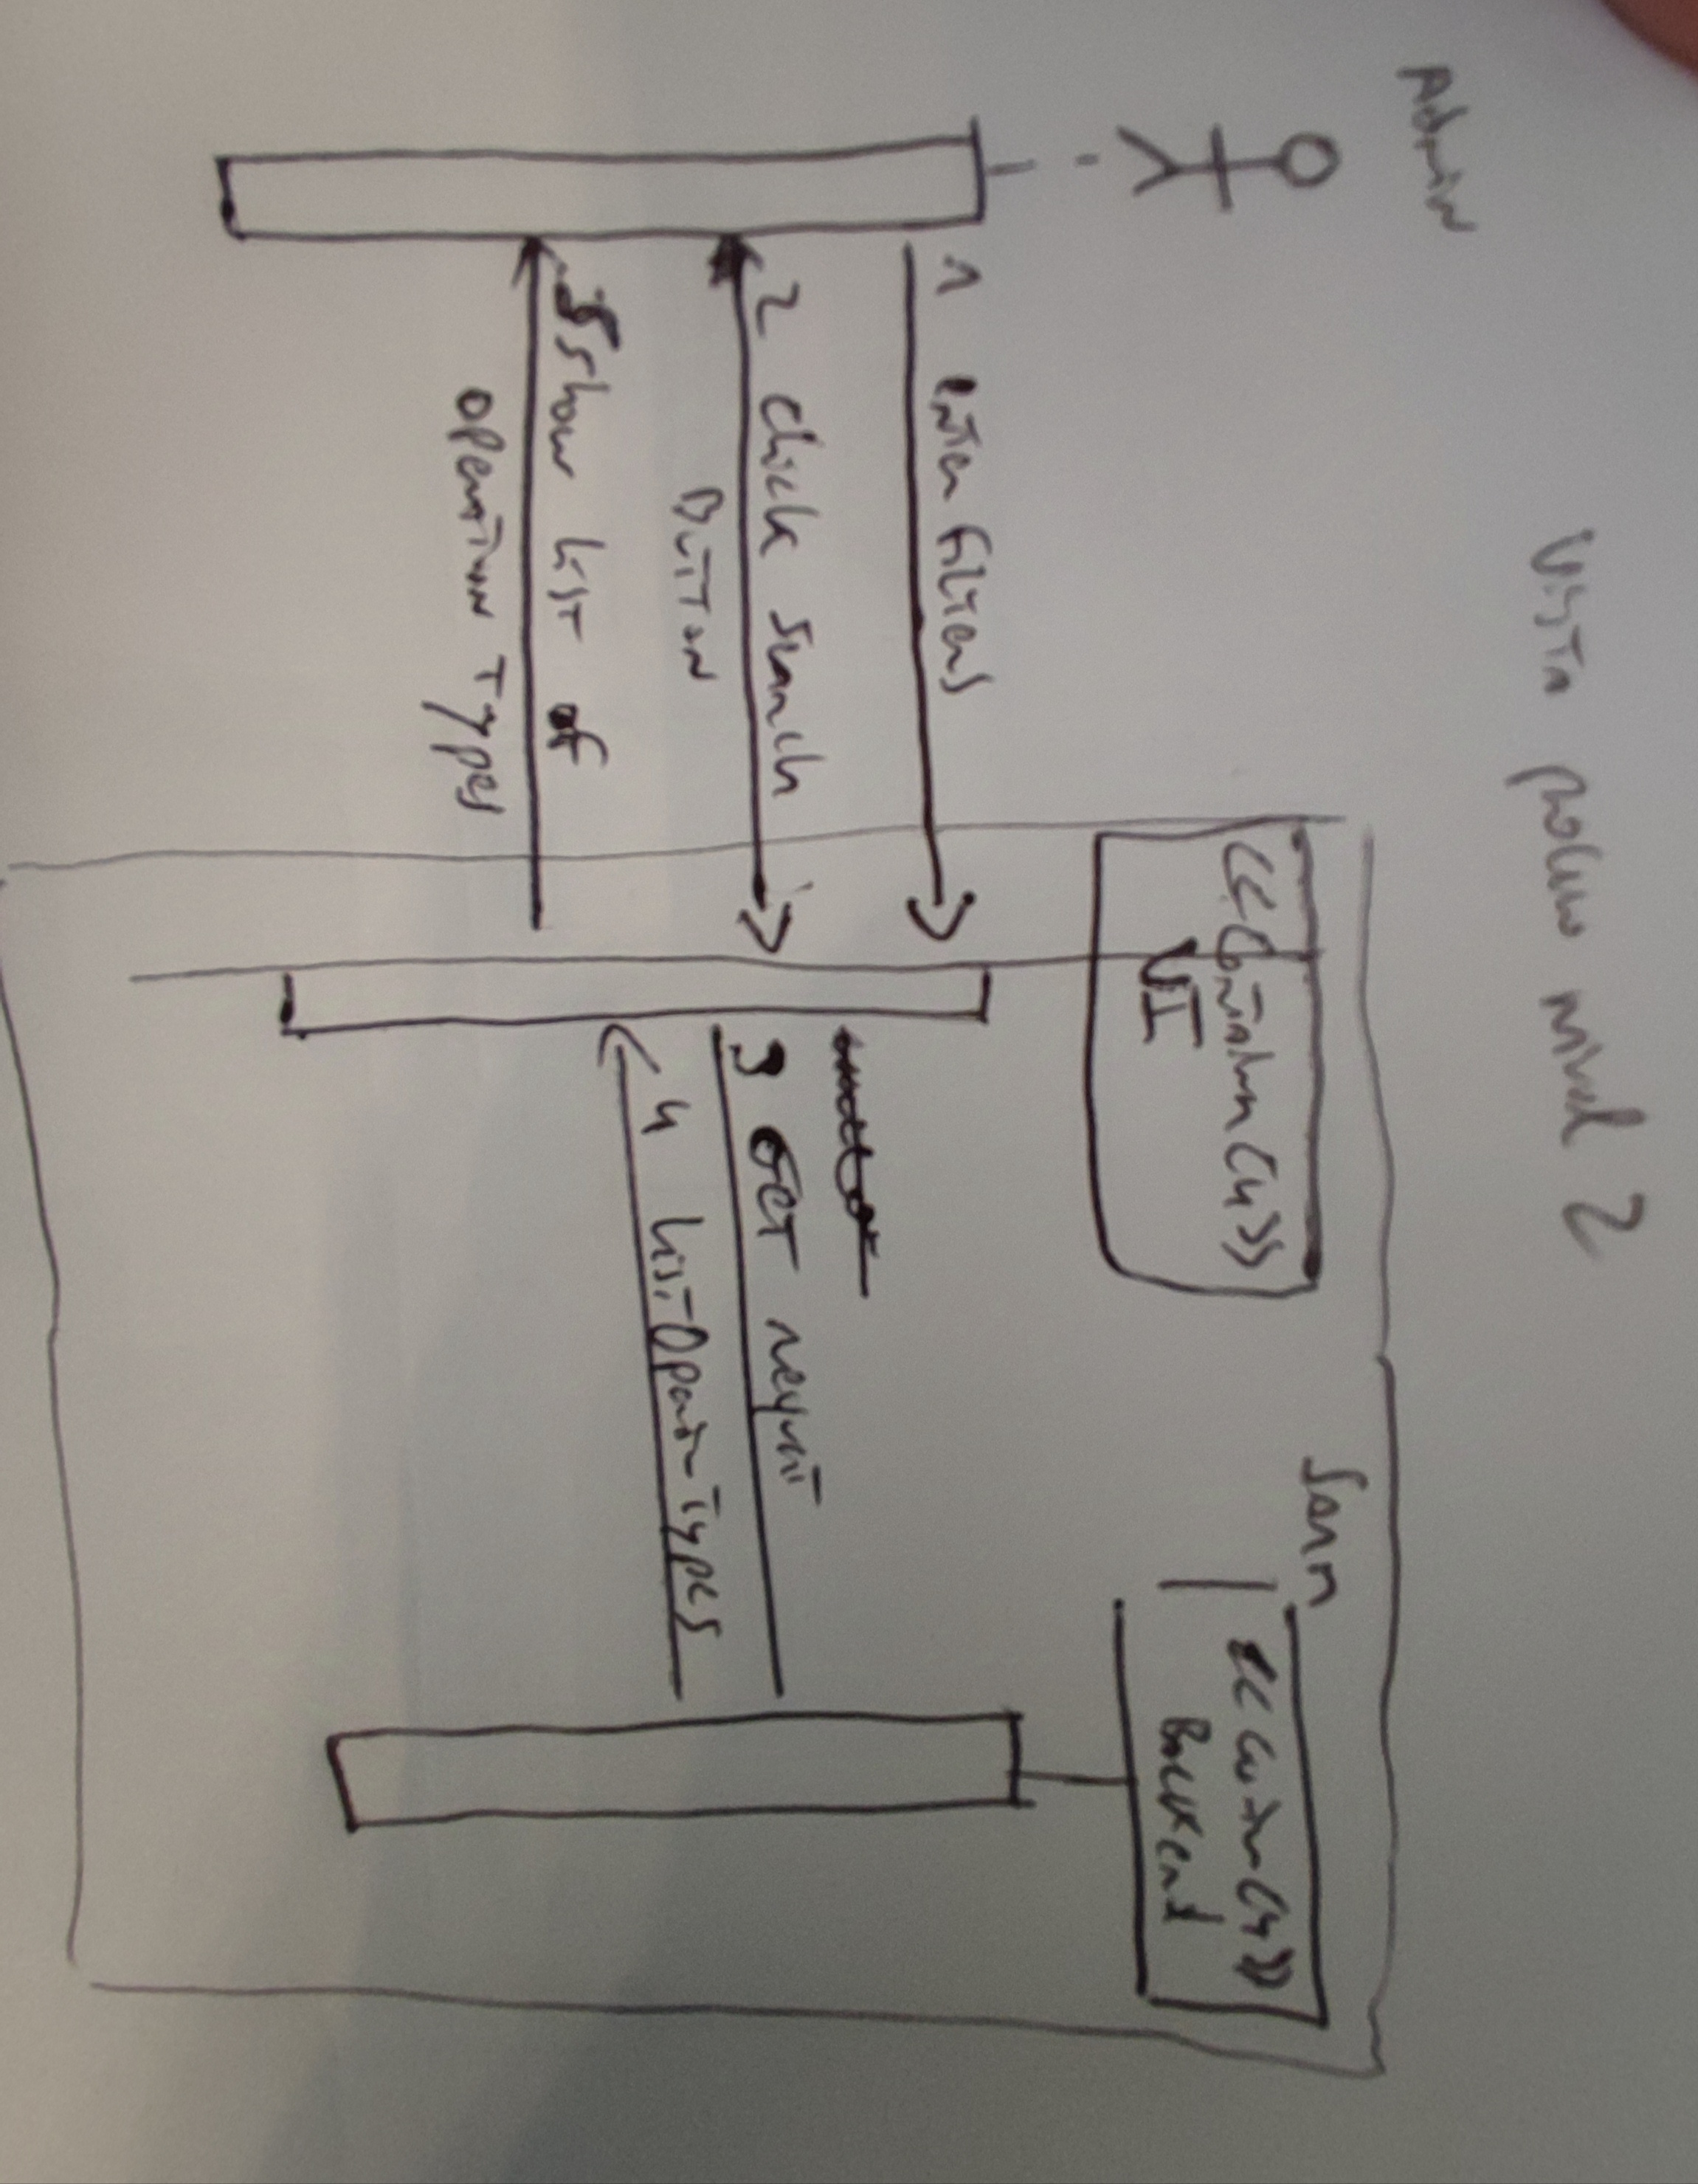 Vista proceso nivel 2
Admin
<<Container C4>>
UI
Sarm
<<Container C4>>
Backend
1 enter filters
2 click search
Button
3 GET request
4 listOperationTypes
5 show list of
operation types